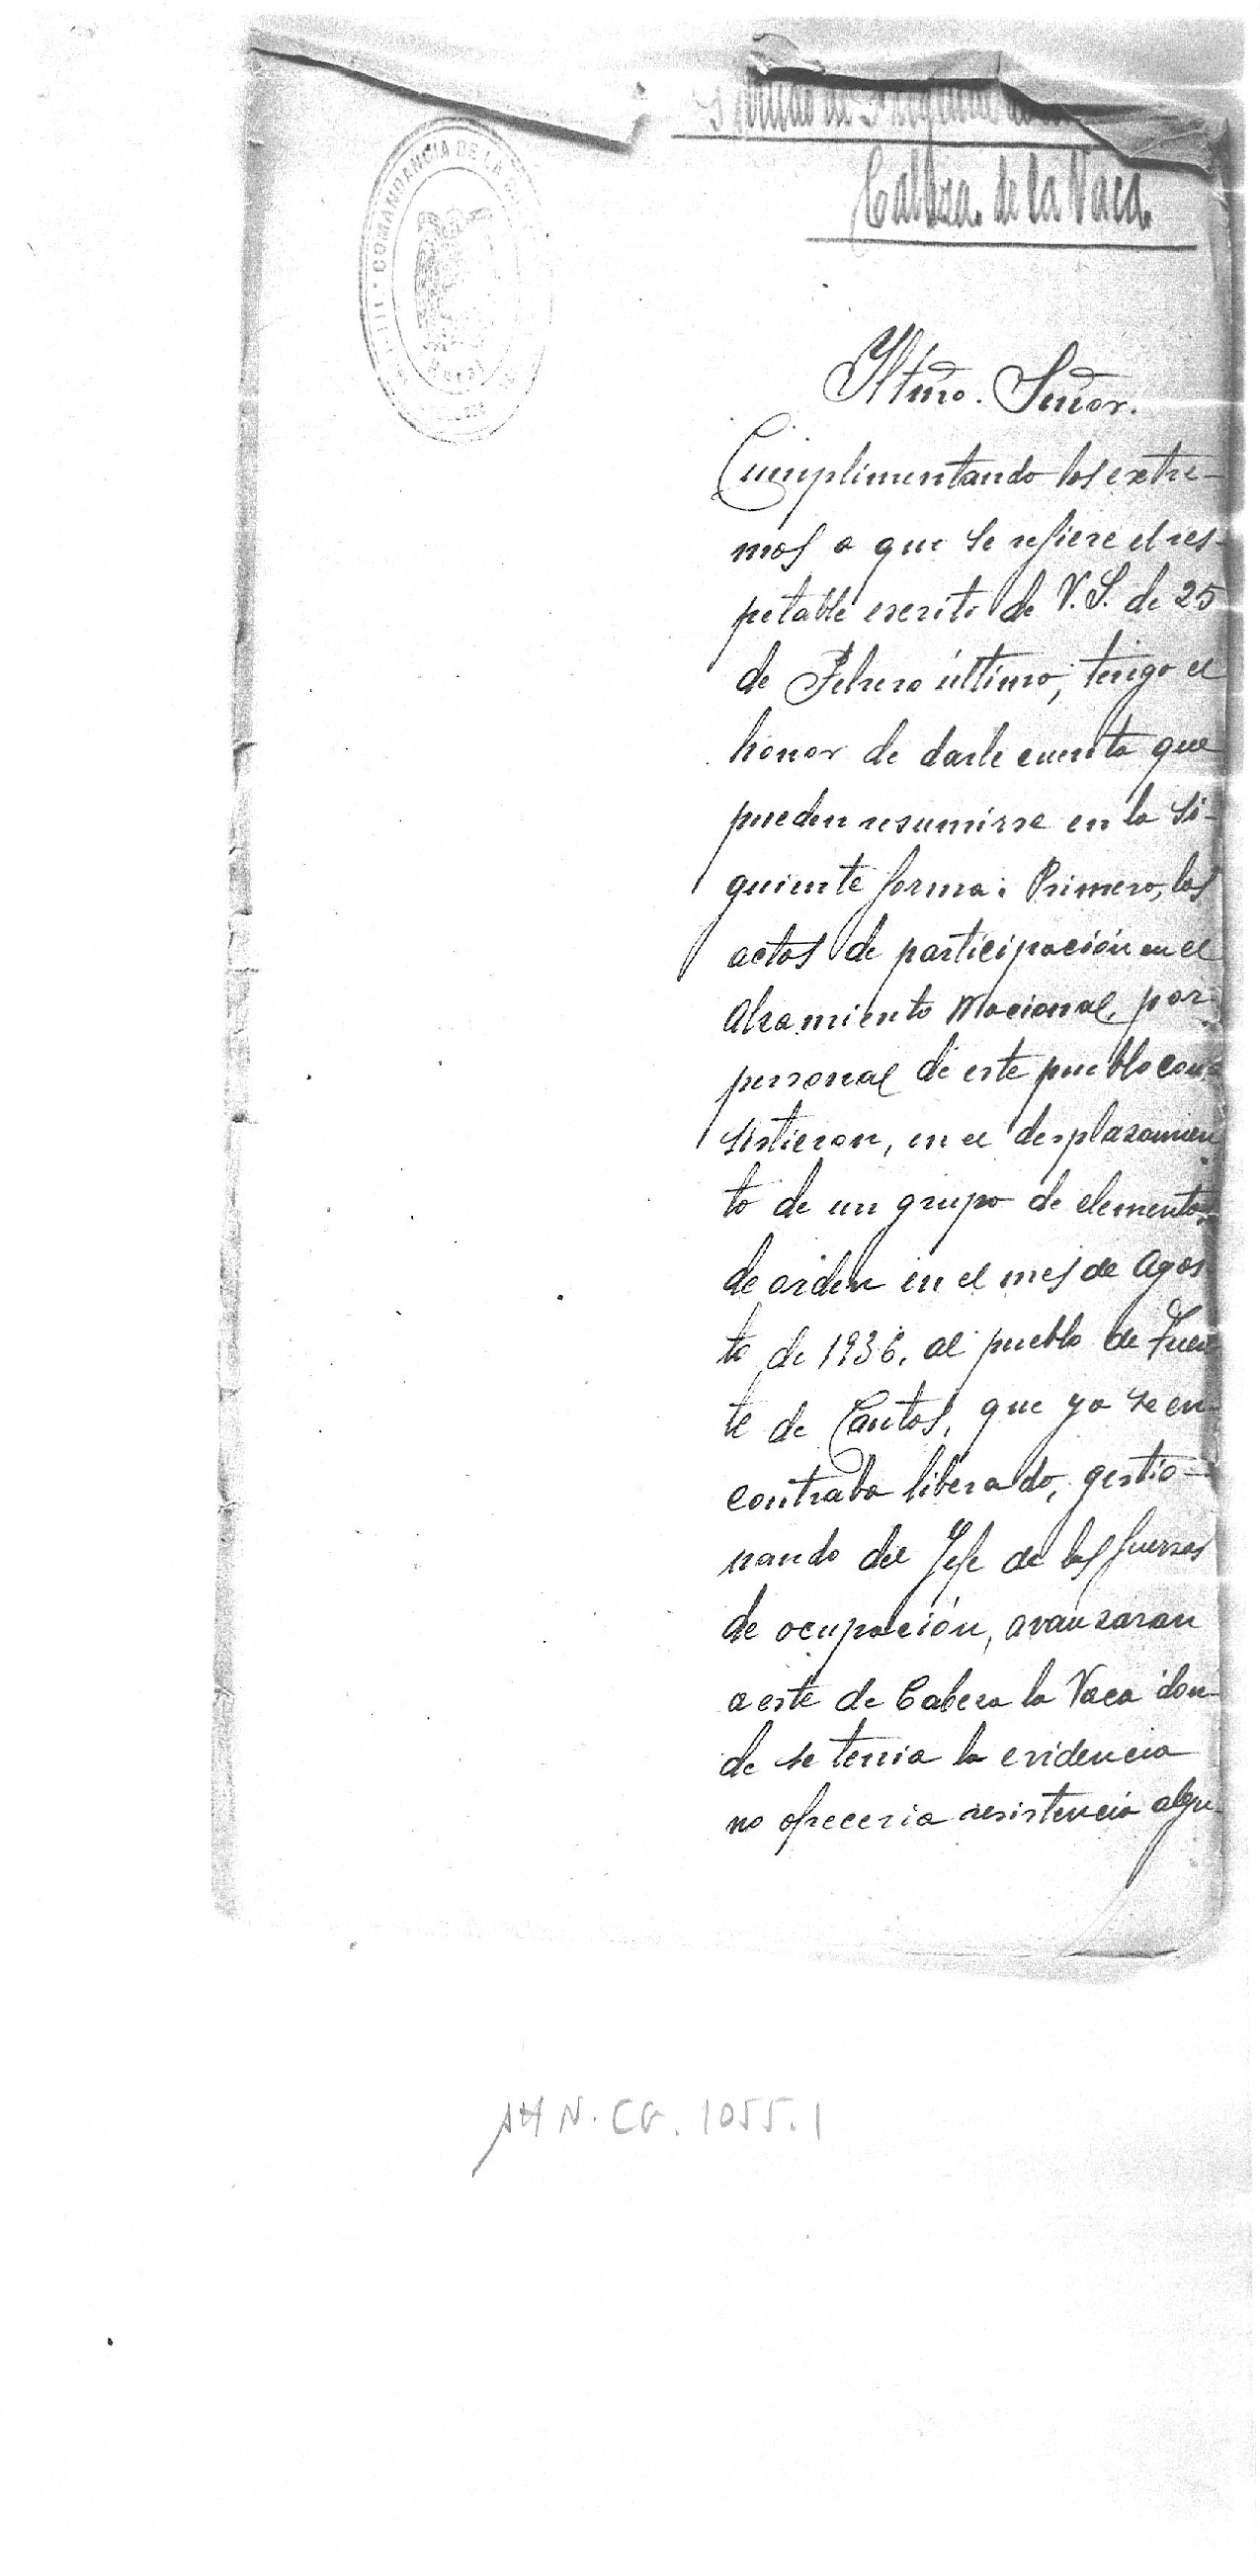 COMANDANCIA DE LA
Rural
Cabeza. de la Vaca.
Iltmo. Señor.
Cumplimentando los extre-
mos a que se refiere el res-
petable escrito de V.S. de 25
de Febrero último, tengo el
honor de darle cuenta que
pueden resumirse en la si-
guiente forma: Primero, los
actos de participación en el
Alzamiento Nacional, por
personal de este pueblo con-
sistieron, en el desplazamien
to de un grupo de elementos
de orden en el mes de Agos
to de 1936, al pueblo de Fuen
te de Cantos, que ya se en-
contraba liberado, gestio-
nando del Jefe de las fuerzas
de ocupación, avanzaran
a este de Cabeza la Vaca don-
de se tenia la evidencia
no ofreceria resistencia algu-
AHN. CG. 1055.1